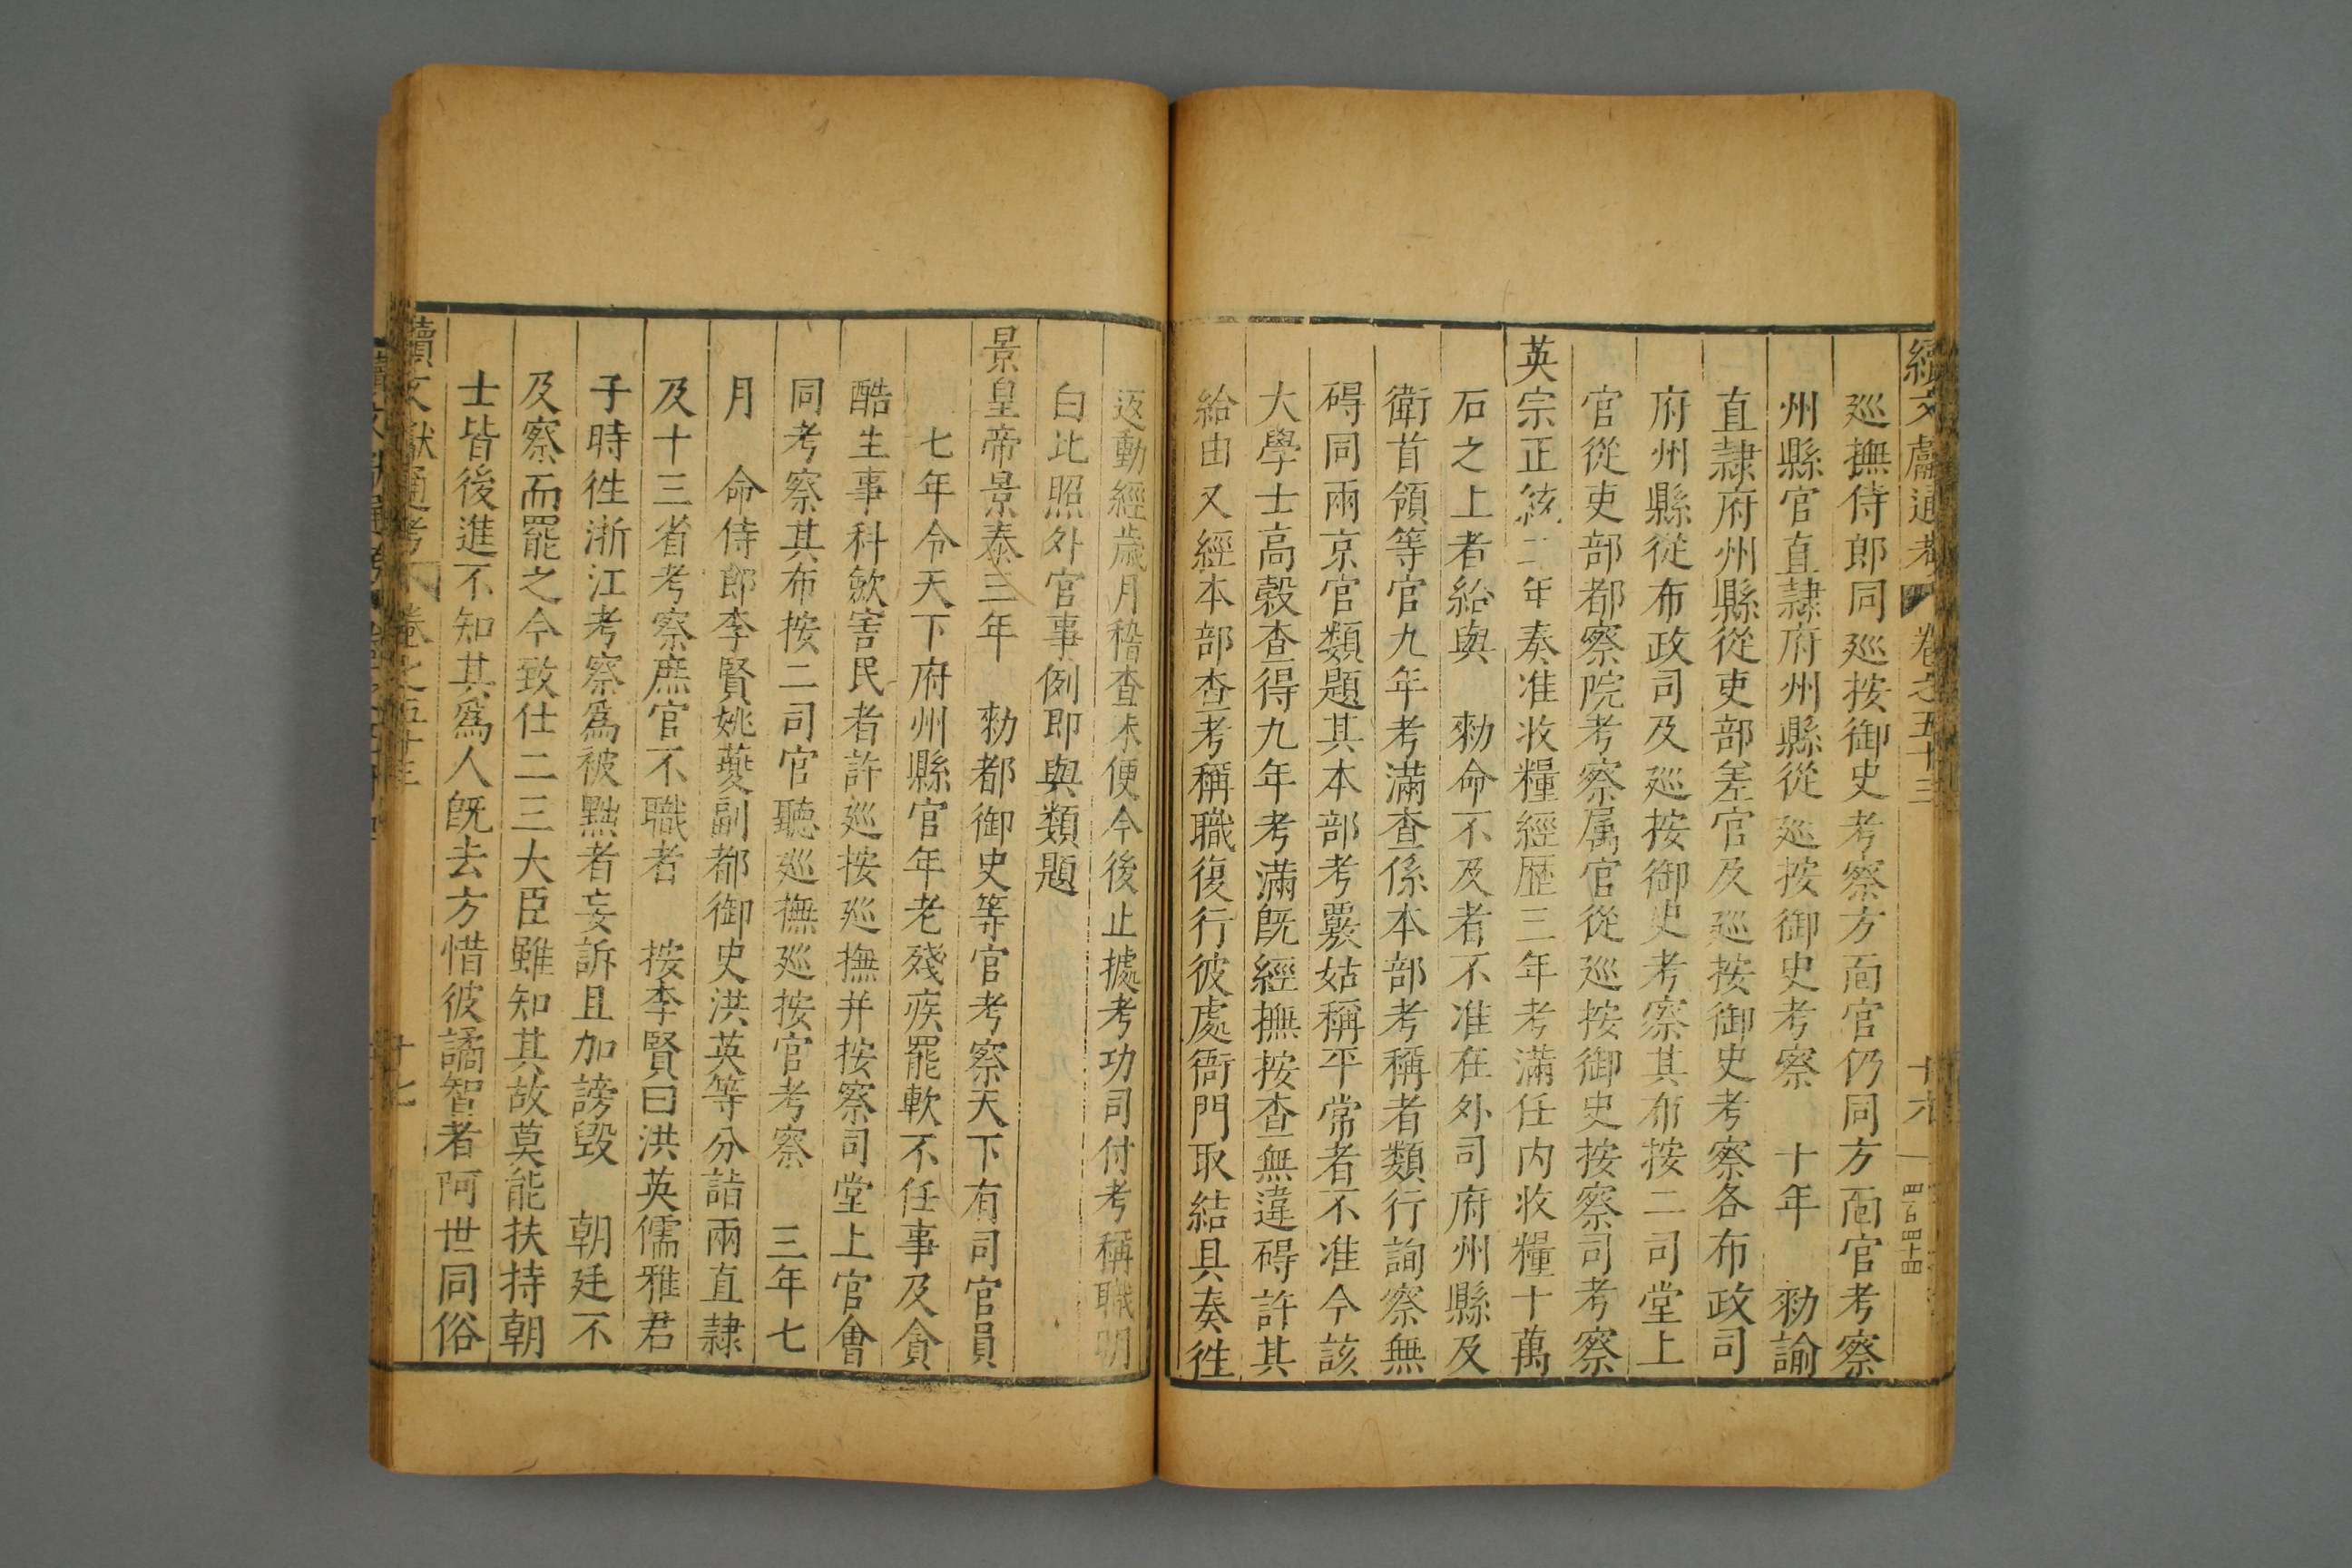 續文獻通考 卷之五十三 十六
巡撫侍郎同巡按御史考察方面官仍同方面官考察
州縣官直隸府州縣從巡按御史考察 十年 勑諭
直隸府州縣從吏部差官及巡按御史考察各布政司
府州縣從布政司及巡按御史考察其布按二司堂上
官從吏部都察院考察属官從巡按御史按察司考察
英宗正統二年奏准收糧經歷三年考滿任内收糧十萬
石之上者給與 勑命不及者不准在外司府州縣及
衛首領等官九年考滿查係本部考稱者類行詢察無
碍同兩京官類題其本部考覈姑稱平常者不准今該
大學士高穀查得九年考滿既經撫按查無違碍許其
給由又經本部查考稱職復行彼處衙門取結具奏徃
返動經歲月稽查未便今後止據考功司付考稱職明
白比照外官事例即與類題
景皇帝景泰三年 勑都御史等官考察天下有司官員
七年令天下府州縣官年老殘疾罷軟不任事及貪
酷生事科歛害民者許巡按巡撫并按察司堂上官會
同考察其布按二司官聽巡撫巡按官考察 三年七
月 命侍郎李賢姚夔副都御史洪英等分詣兩直隸
及十三省考察庶官不職者 按李賢曰洪英儒雅君
子時徃浙江考察爲被黜者妄訴且加謗毀 朝廷不
及察而罷之令致仕二三大臣雖知其故莫能扶持朝
士皆後進不知其爲人既去方惜彼譎智者阿世同俗
續文獻通考 卷之五十三 十七